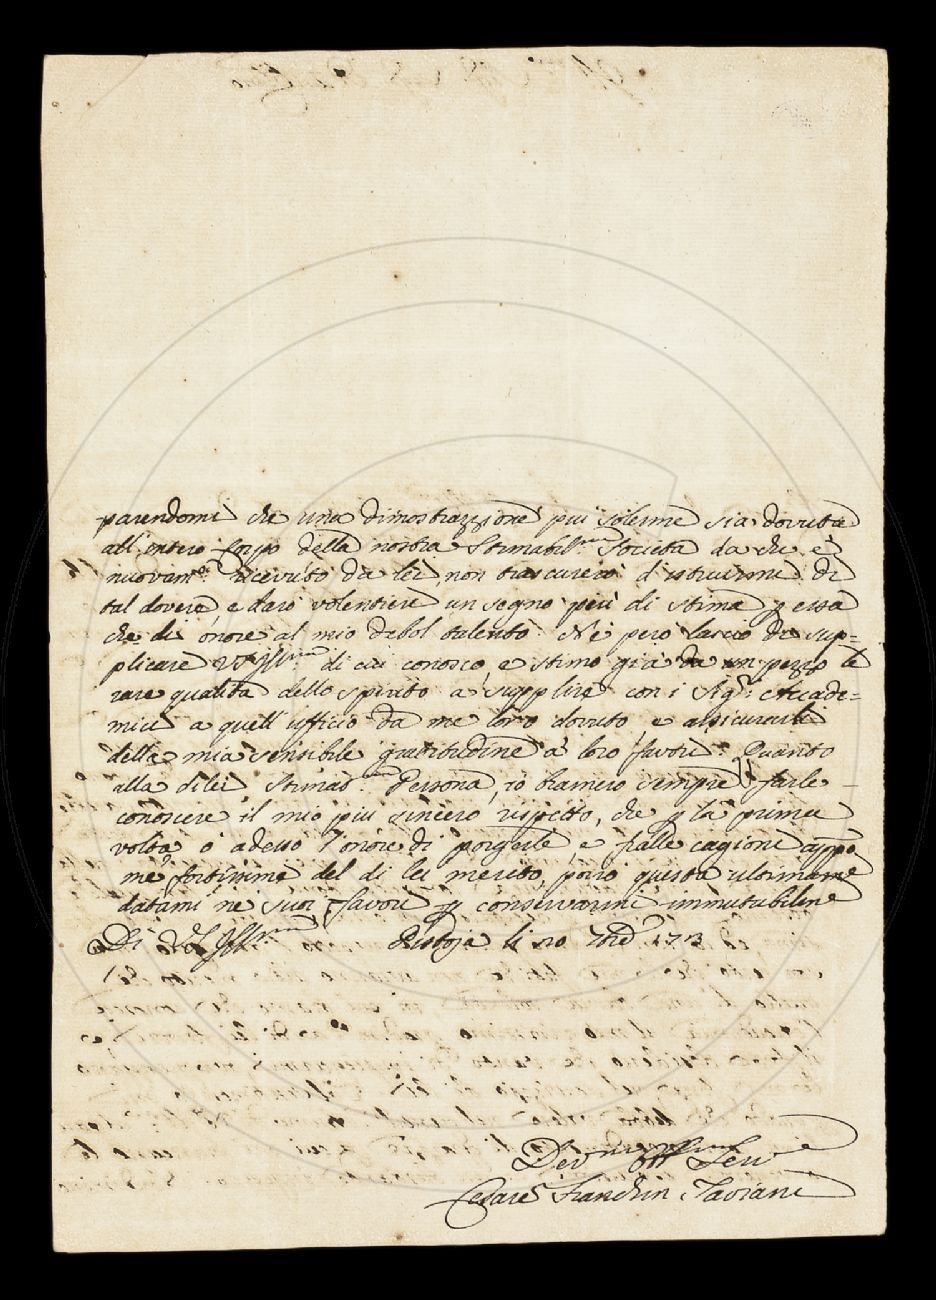 parendomi che una dimostrazione piu solenne sia dovuta
all'intero Corpo della nostra Stimabil.ma Società da che è
nuovam.te ricevuto da lei, non trascurerò d'istruirmi di
tal dovere e darò volentieri un segno più di stima p essa
che di onore al mio debol talento. Nè però lascio di sup=
plicare VS Ill.ma di cui conosco, e stimo già da un pezzo le
rare qualità dello spirito a supplire con i Sig.ri Accade=
mici a quell'ufficio da me loro dovuto e assicurarli
della mia sensibile gratitudine a loro favori. Quanto
alla di lei Stimat.ma Persona, io bramerò sempre farle
conoscere il mio piu sincero rispetto, che p la prima
volta ò adesso l'onore di porgerle, e fralle cagioni appo
me fortissime del di lei merito, porrò questa ultimame
datami ne suoi favori p conservarmi immutabilme
Di VS Ill.ma Pistoja li 20 173
Dev.mo Obb.mo Serv.e
Cesare Franchin Taviani